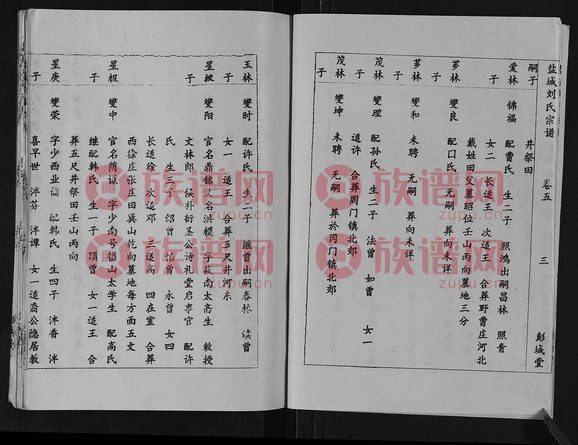 盐城刘氏宗谱 卷五 三 彭城堂
嗣子 井祭田
爱林 锦福 配曹氏 生二子 照鸿出嗣昌林 照青
子 女二 长适王 次适王 合葬野曹庄河北
戴姓田父冀昭位壬山丙向墓地三分
茅林 燮良 配口氏 无嗣 葬向未详
子 燮和 未聘 无嗣 葬向未详
茂林 燮理 配孙氏 生二子 法曾 如曾 女一
子 适许 合葬冈门镇北郊
茂林 燮坤 未聘 无嗣 葬於冈门镇北郊
子
玉林 燮时 配许氏 生二子 继曾出嗣春松 读曾
子 女一 适王 合葬五尺井河东
星极 燮阳 官名鼎铭 又名洪模 字莪南 太斋生 教授
子 文林郎 候补衍圣公诗礼堂启事官 配许
氏 生三子 绍曾 怡曾 永曾 女四
长适徐 次适邓 三适高 四在室 合葬
西徐庄张庄田巽山乾向墓地每方面五丈
星极 燮中 官名荫谦 字少南 号锱山 太学生 配高氏
子 继配韩氏 生一子 顶曾 女一适王 合
葬五尺井祭田壬山丙向
星庚 燮荣 字少西 业儒 配韩氏 生四子 泮香 泮
子 喜早世 泮芬 泮谭 女一适裔公隐居教